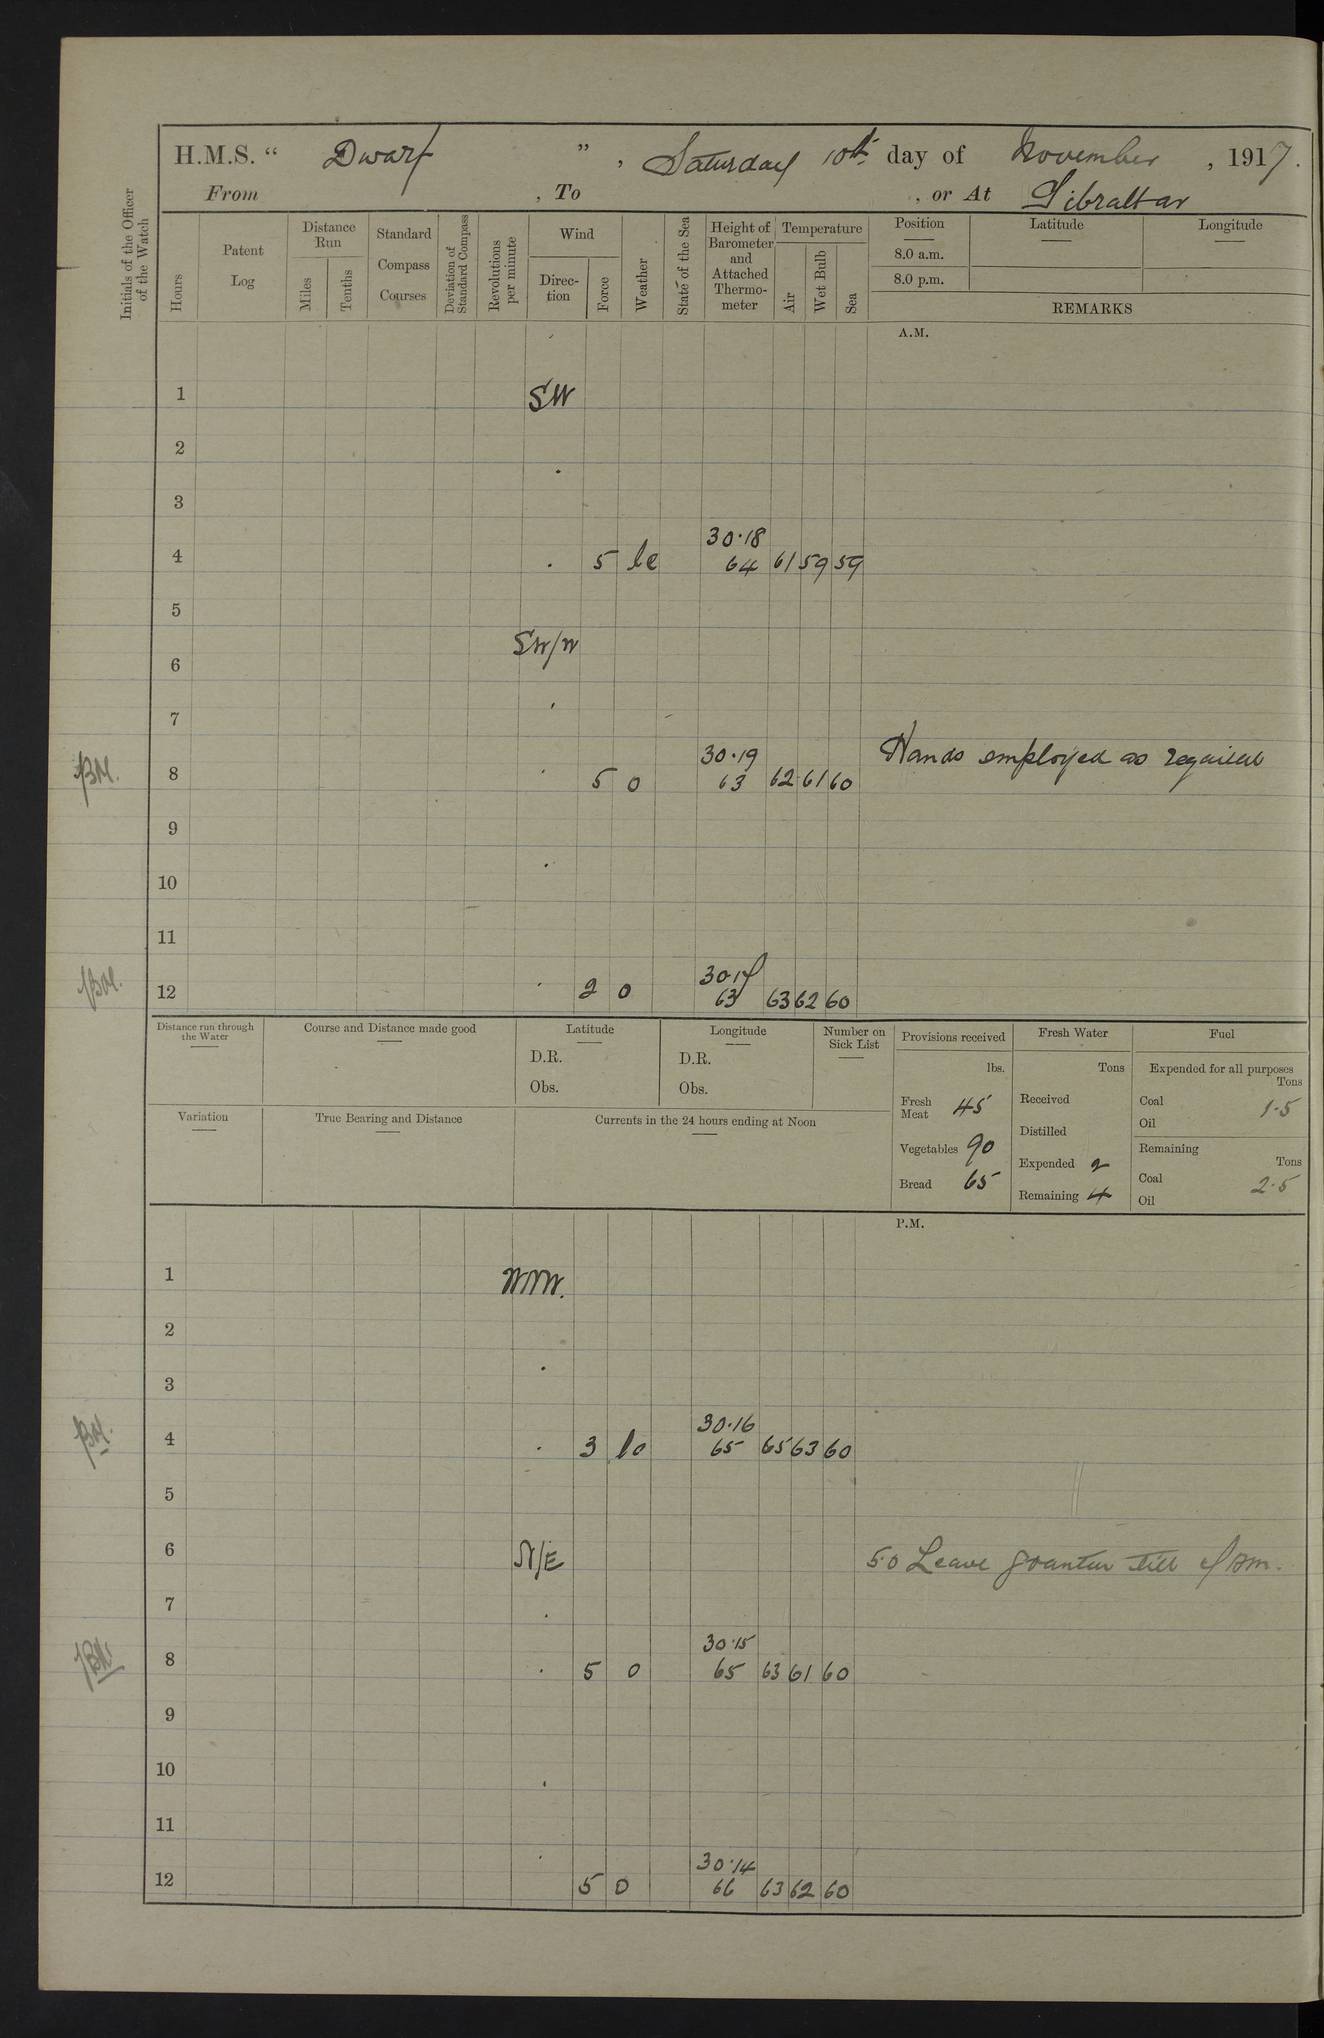 H.M.S. “ Dwarf ” , Saturday 10th day of November , 1917.
From , To , or At Gibraltar
Initials of the Officer of the Watch
Hours
Patent Log
Distance Run
Miles
Tenths
Standard Compass Courses
Deviation of Standard Compass
Revolutions per minute
Wind
Direction
Force
Weather
State of the Sea
Height of Barometer and Attached Thermometer
Temperature
Air
Wet Bulb
Sea
Position Latitude Longitude
8.0 a.m.
8.0 p.m.
REMARKS
A.M.
1 SW
2
3
30.18
4 . 5 64 61 59 59
5
6 SW/W
7
30.19 Hands employed as required
8 . 5 0 63 62 61 60
9
10
11
12 . 2 0 63 63 62 60
Distance run through the Water
Course and Distance made good
Latitude
D.R.
Obs.
Longitude
D.R.
Obs.
Number on Sick List
Provisions received
lbs.
Fresh Meat 45
Vegetables 90
Bread 65
Fresh Water
Tons
Received
Distilled
Expended 2
Remaining 4
Fuel
Expended for all purposes
Tons
Coal 1.5
Oil
Remaining
Tons
Coal 2.5
Oil
Variation
True Bearing and Distance
Currents in the 24 hours ending at Noon
P.M.
1 WNW.
2
3
30.16
4 . 3 65 65 63 60
5
6 N/E 5.0 Leave granted till
7
30.15
8 . 5 0 65 63 61 60
9
10
11
30.14
12 5 0 66 63 62 60